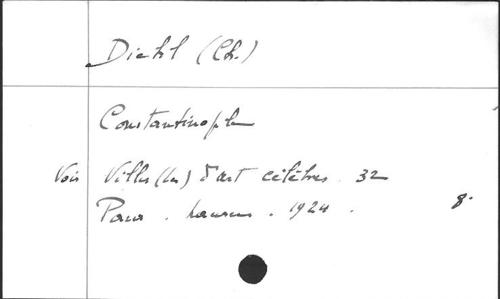 Diehl (Ch.)
Constantinople
Voir Villes (les) d'art célèbres. 32
Paris. Laurens. 1924. 8.